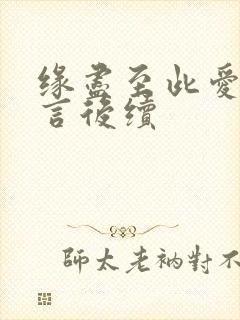 緣盡至此愛
言後續
師太老衲對不